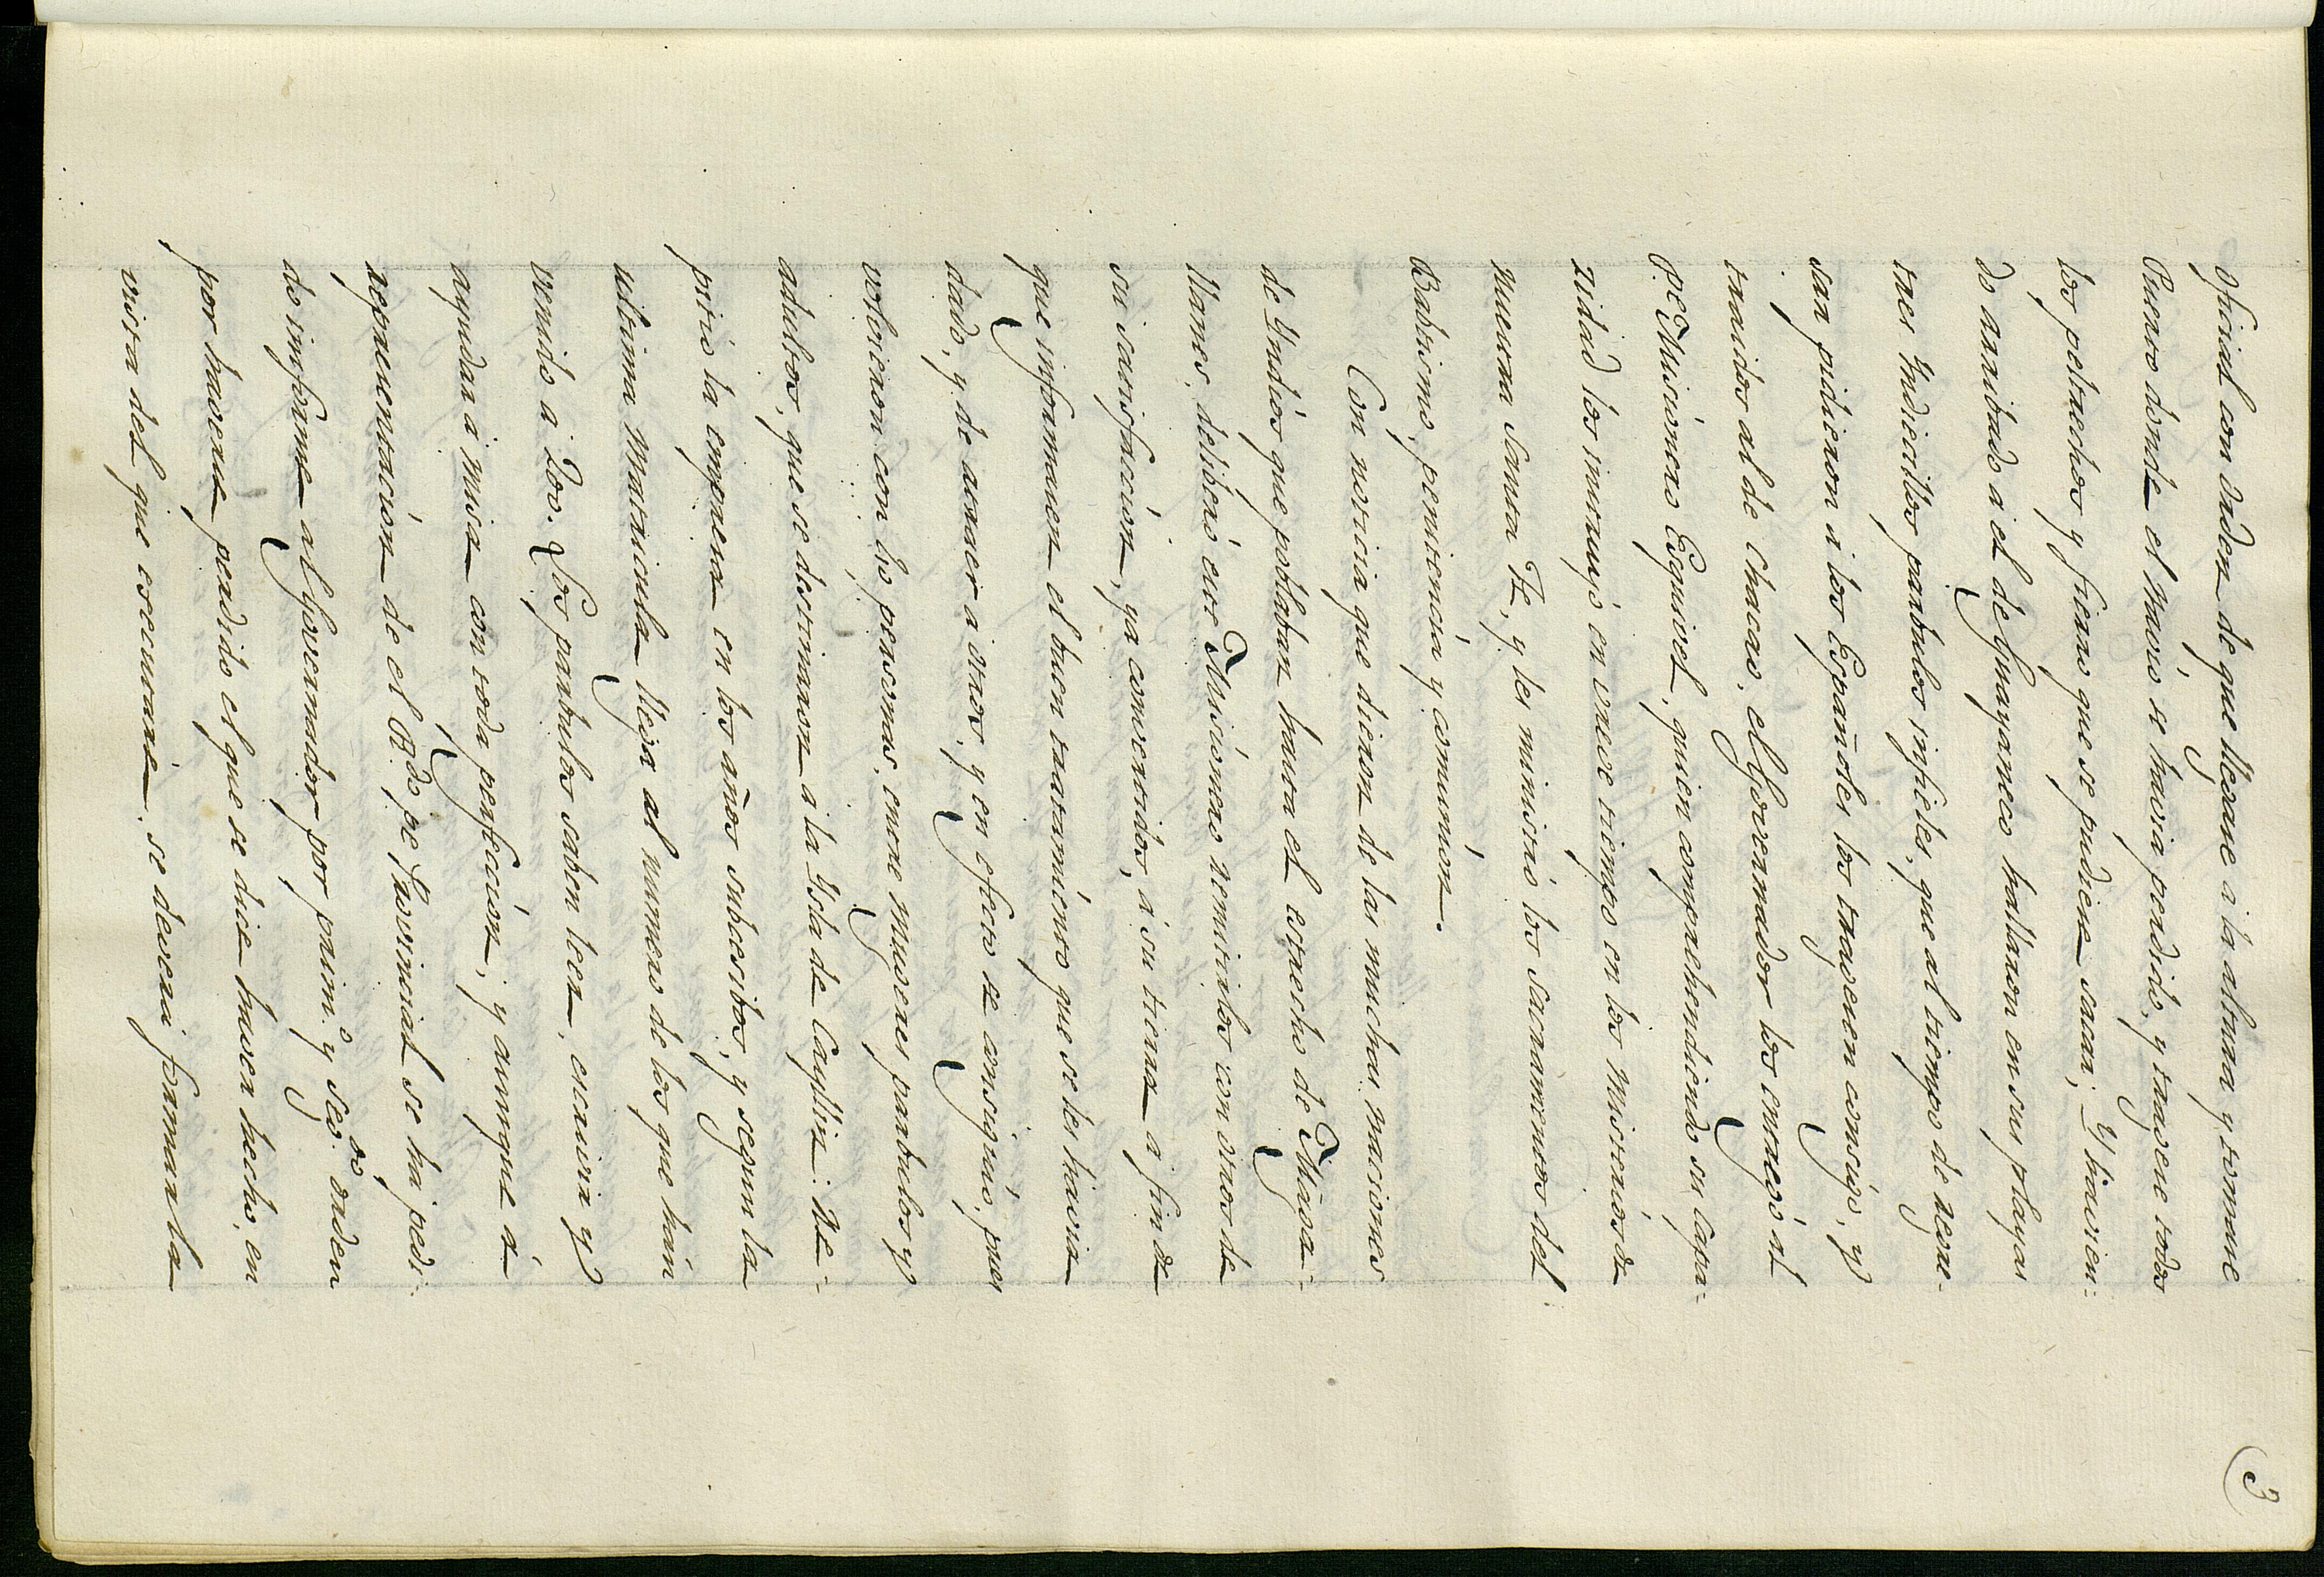 3
oficial con orden de que llegase à la altura y tomase
Puerto donde el Navio se havia perdido, y trajese todos
los petrechos y fierro que se pudiese sacar; Y havien-
do arribado à el de Guayaneco hallaron en sus playas
tres Yndiecitos parbulos infieles, que al tiempo de regre-
sar pidieron à los Españoles los trajesen consigo, y
traidos al de Chacao, el Governador los entregó al
P.e Misionero Esquivel, quien comprehendiendo su Capa-
zidad los instruyó en breve tiempo en los Misterios de
nuestra Santa Fe, y les ministró los sacramentos del
Babtismo, penitencia y comunion.
Con noticia que dieron de las muchas naciones
de Yndios que poblaban hasta el estrecho de Maga-
llanes, deliberó este Misionero remitirlos con otros de
su satisfaccion, ya convertidos, à su tierra a fin de
que informasen el buen tratamiento que se les havia
dado, y de atraer a otros, y en efecto se consiguió, pues
volvieron con 40 personas, entre Mugeres parbulos y
adultos, que se destinaron a la Ysla de Cayllin: Re-
pitio la empresa en los años subcesibos, y segun la
ultima Matricula llega al numero de los que hán
venido à 200. Los parbulos saben leer, escrivir y
ayudar à Misa con toda perfeccion; y aunque à
representacion de el R.do P.e Provincial se ha pedi-
do informe al Governador por prim.o y seg.do orden
por haverse perdido el que se dice haver hecho, en
vista del que executase, se deveria formar la